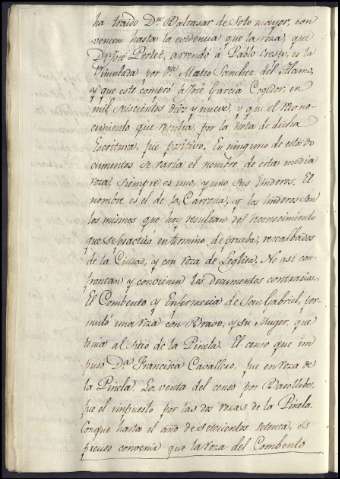 ha traido Dn. Baltasar de Soto mayor, con
vencen hasta la evidencia que la roza, que
Dn. José Pertet, arrendó á Pablo Crespo, es la
Vinculada por Dn. Mateo Sanchez del Alamo,
y que este compró á José Garcia Cogedor, en
mil seiscientos diez y nueve, y qui el Mono-
cupiento que por la Nota de dicha
Escritura, fue positivo. En ninguno de estos do
cumentos se varia el nombre de esta media
roza, siempre es uno, y uno sus linderos. El
nombre es el de la Carroza, y los linderos son
los mismos que hoy resultan del reconocimiento
que se practicó en termino de prueba, resvalbados
de la Ciudad, y con roza de Legitos. No asi con-
frontan y convienen los documentos contrarios.
El Combento y Enfermeria de San Gabriel, per-
mutó una roza con Bravo, y su Muger, que
tenia al Sitio de la Piñela. El censo que im
puso Da. Francisca Cavallero, fue en roza de
la Piñela. La venta del censo por
fue el impuesto por las dos rozas de la Piñela.
Conque hasta el año de setecientos setenta, es
preciso convenir que la roza del Combento